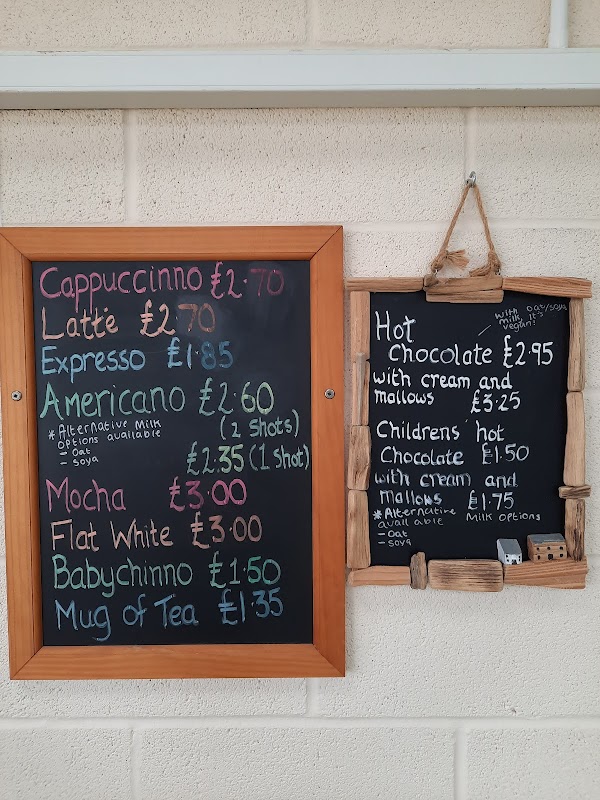 Cappuccinno £2.70
Latte £2.70
Expresso £1.85
Americano £2.60
(2 shots)
*Alternative Milk
options available
- Oat
- soya
£2.35 (1 shot)
Mocha £3.00
Flat White £3.00
Babychinno £1.50
Mug of Tea £1.35
with oat/soya
milk, it's
vegan!
Hot
Chocolate £2.95
with cream and
mallows £3.25
Childrens hot
Chocolate £1.50
with cream and
mallows £1.75
*Alternative
available Milk options
- Oat
- soya